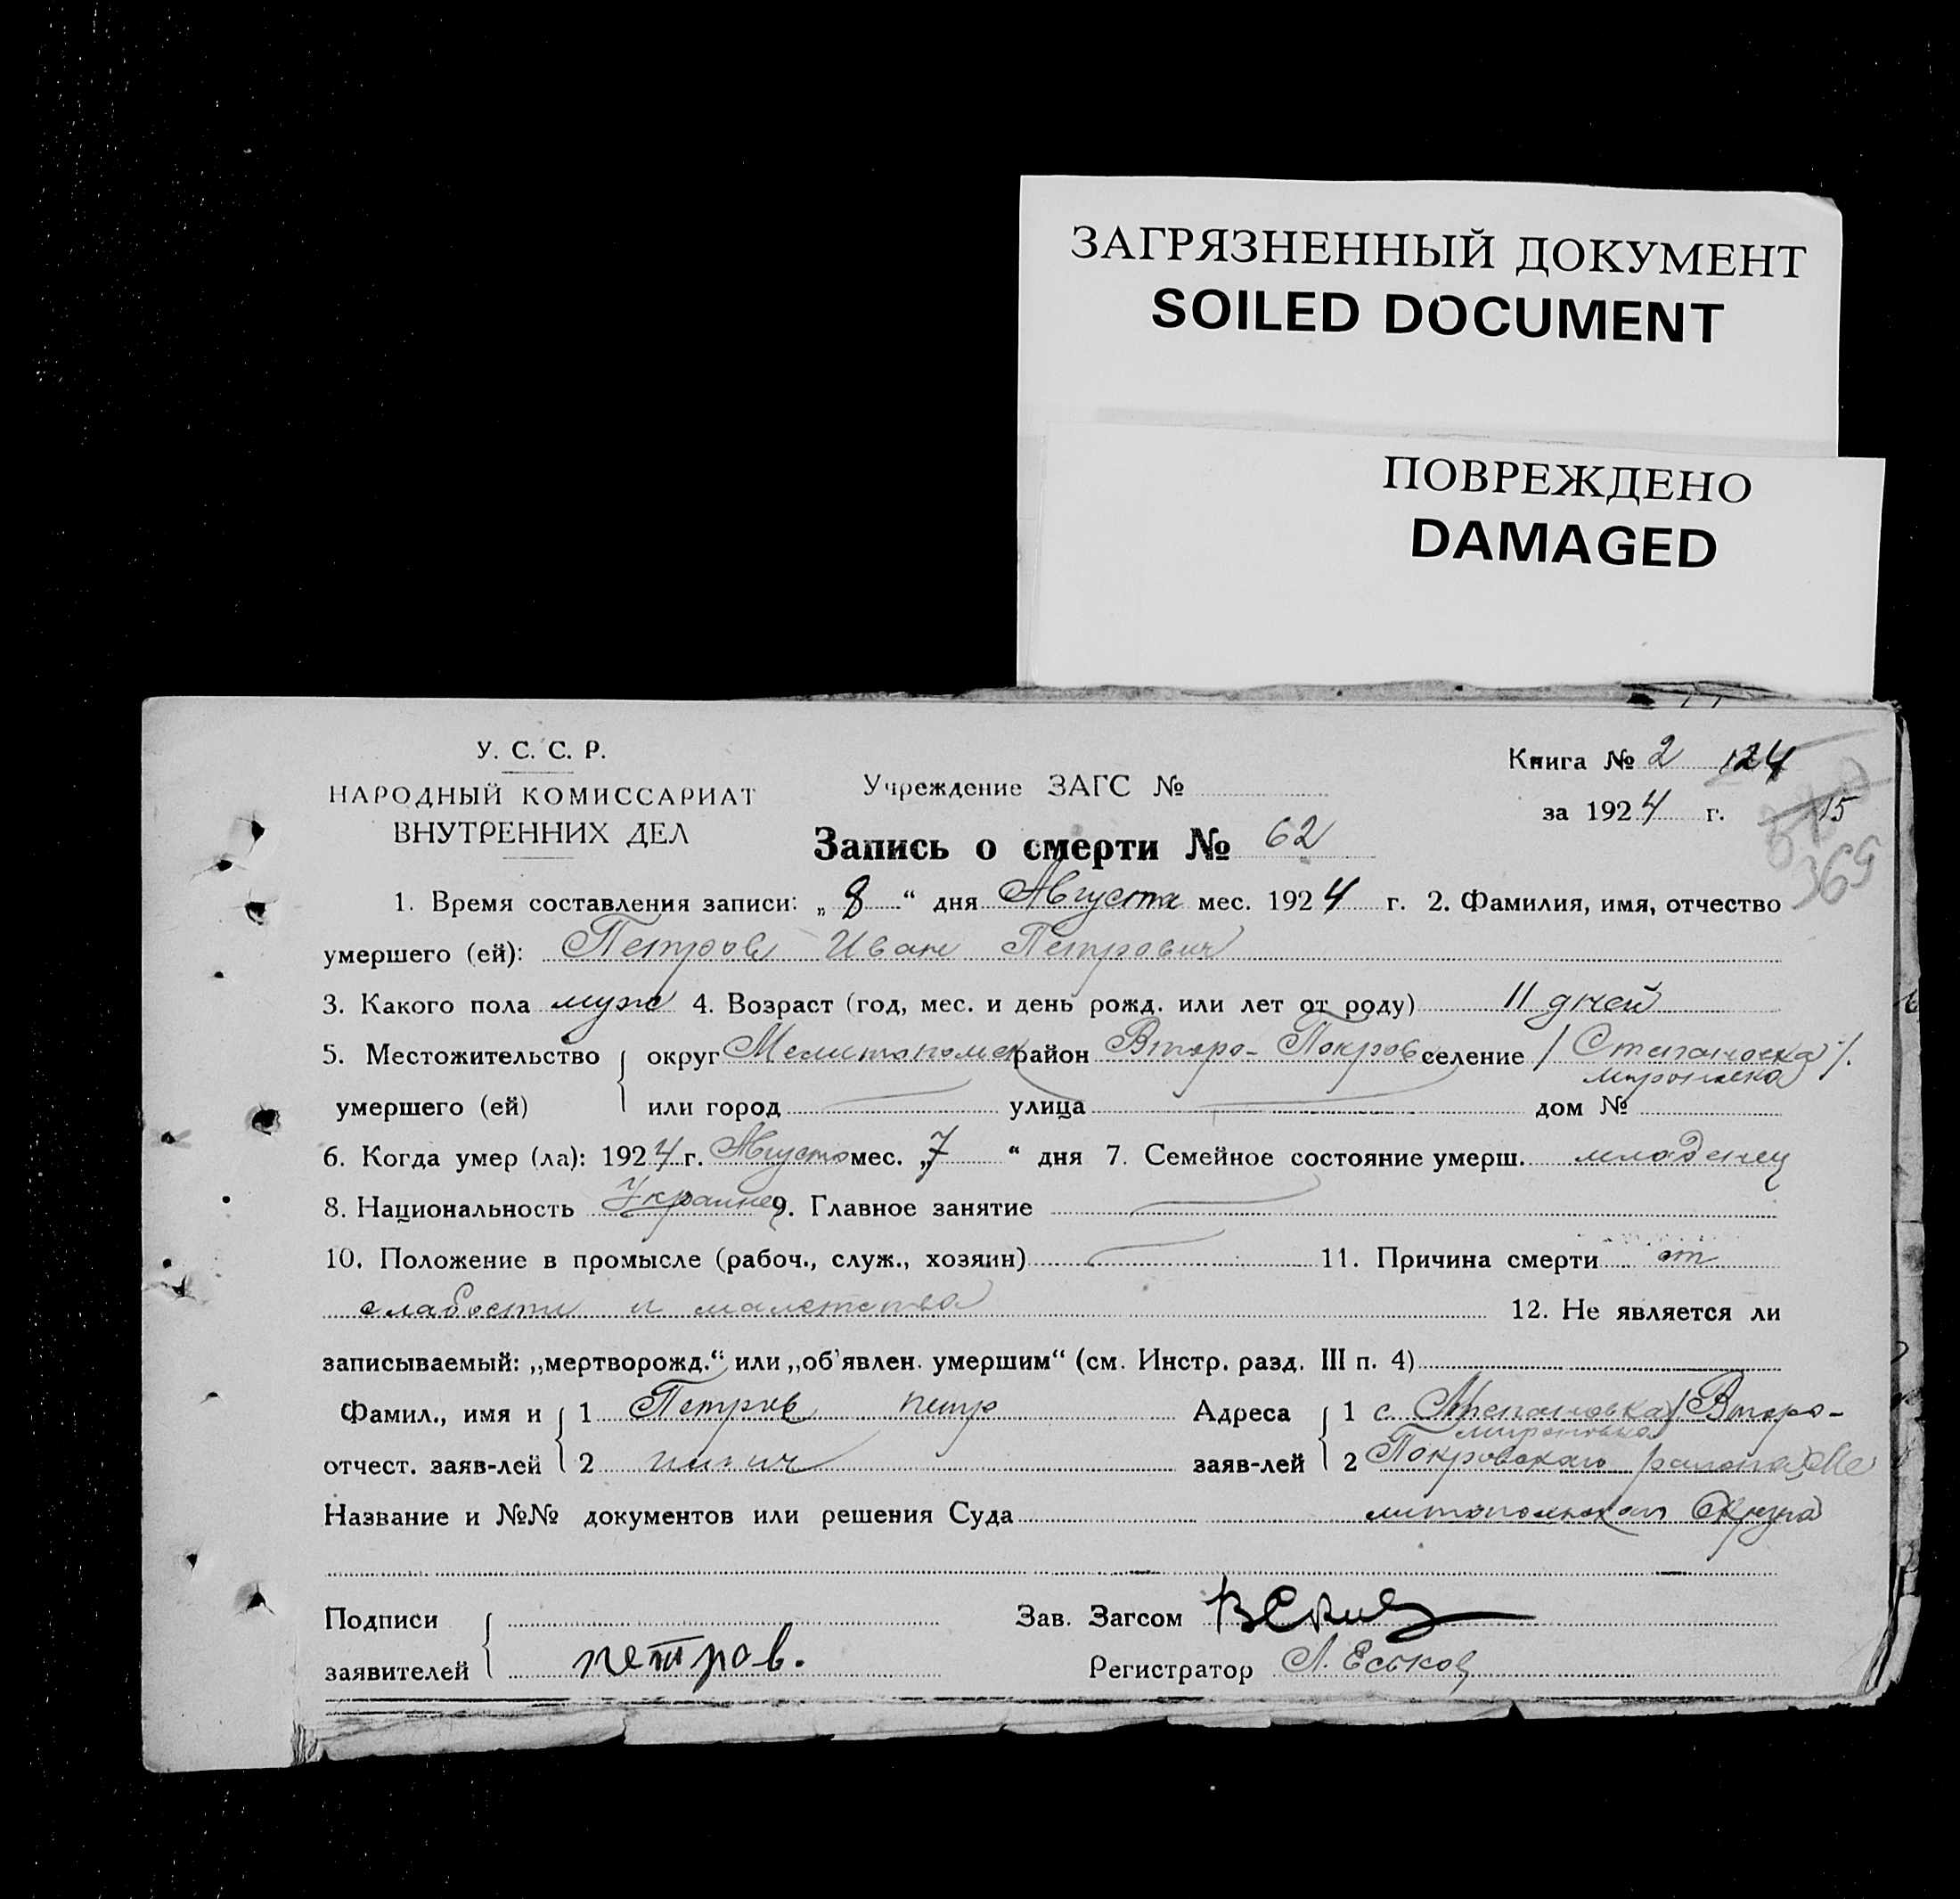 ЗАГРЯЗНЕННЫЙ ДОКУМЕНТ
SOILED DOCUMENT
ПОВРЕЖДЕНО
DAMAGED
У. С. С. Р.
НАРОДНЫЙ КОМИССАРИАТ
ВНУТРЕННИХ ДЕЛ
Учреждение ЗАГС №
Книга № 2 124
за 1924 г. 15
369
Запись о смерти № 62
1. Время составления записи: „8“ дня Августа мес. 1924 г. 2. Фамилия, имя, отчество
умершего (ей): Петров Иван Петрович
3. Какого пола муж 4. Возраст (год, мес. и день рожд. или лет от роду) 11 дней
5. Местожительство округ Мелитопольск район Второ-Покров селение / Степановка /.
мироновка
умершего (ей) или город улица дом №
6. Когда умер (ла): 1924 г. Августа мес. „7“ дня 7. Семейное состояние умерш. младенец
8. Национальность Украинец 9. Главное занятие
10. Положение в промысле (рабоч., служ., хозяин) 11. Причина смерти от
слабости и малетства 12. Не является ли
записываемый: „мертворожд.“ или „об'явлен. умершим“ (см. Инстр. разд. III п. 4)
Фамил., имя и 1 Петров петр Адреса 1 с. Степановка / Второ-
мироновка
отчест. заяв-лей 2 заяв-лей 2 Покровского района Ме
Название и №№ документов или решения Суда литопольского Округа
Подписи Зав. Загсом
заявителей петров. Регистратор Л. Еськов